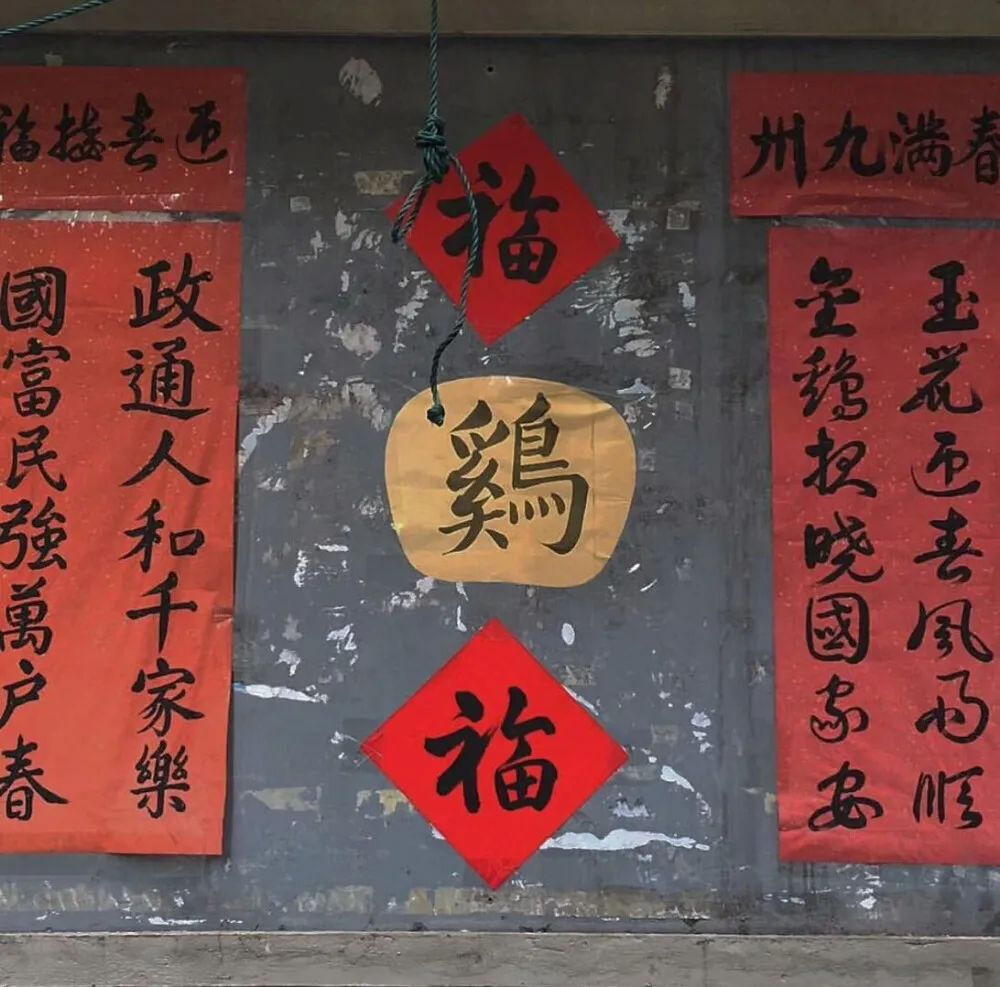 春满九州
玉花迎春風雨順
金鷄报晓國家安
福
鷄
福
迎春接福
政通人和千家樂
國富民強萬户春